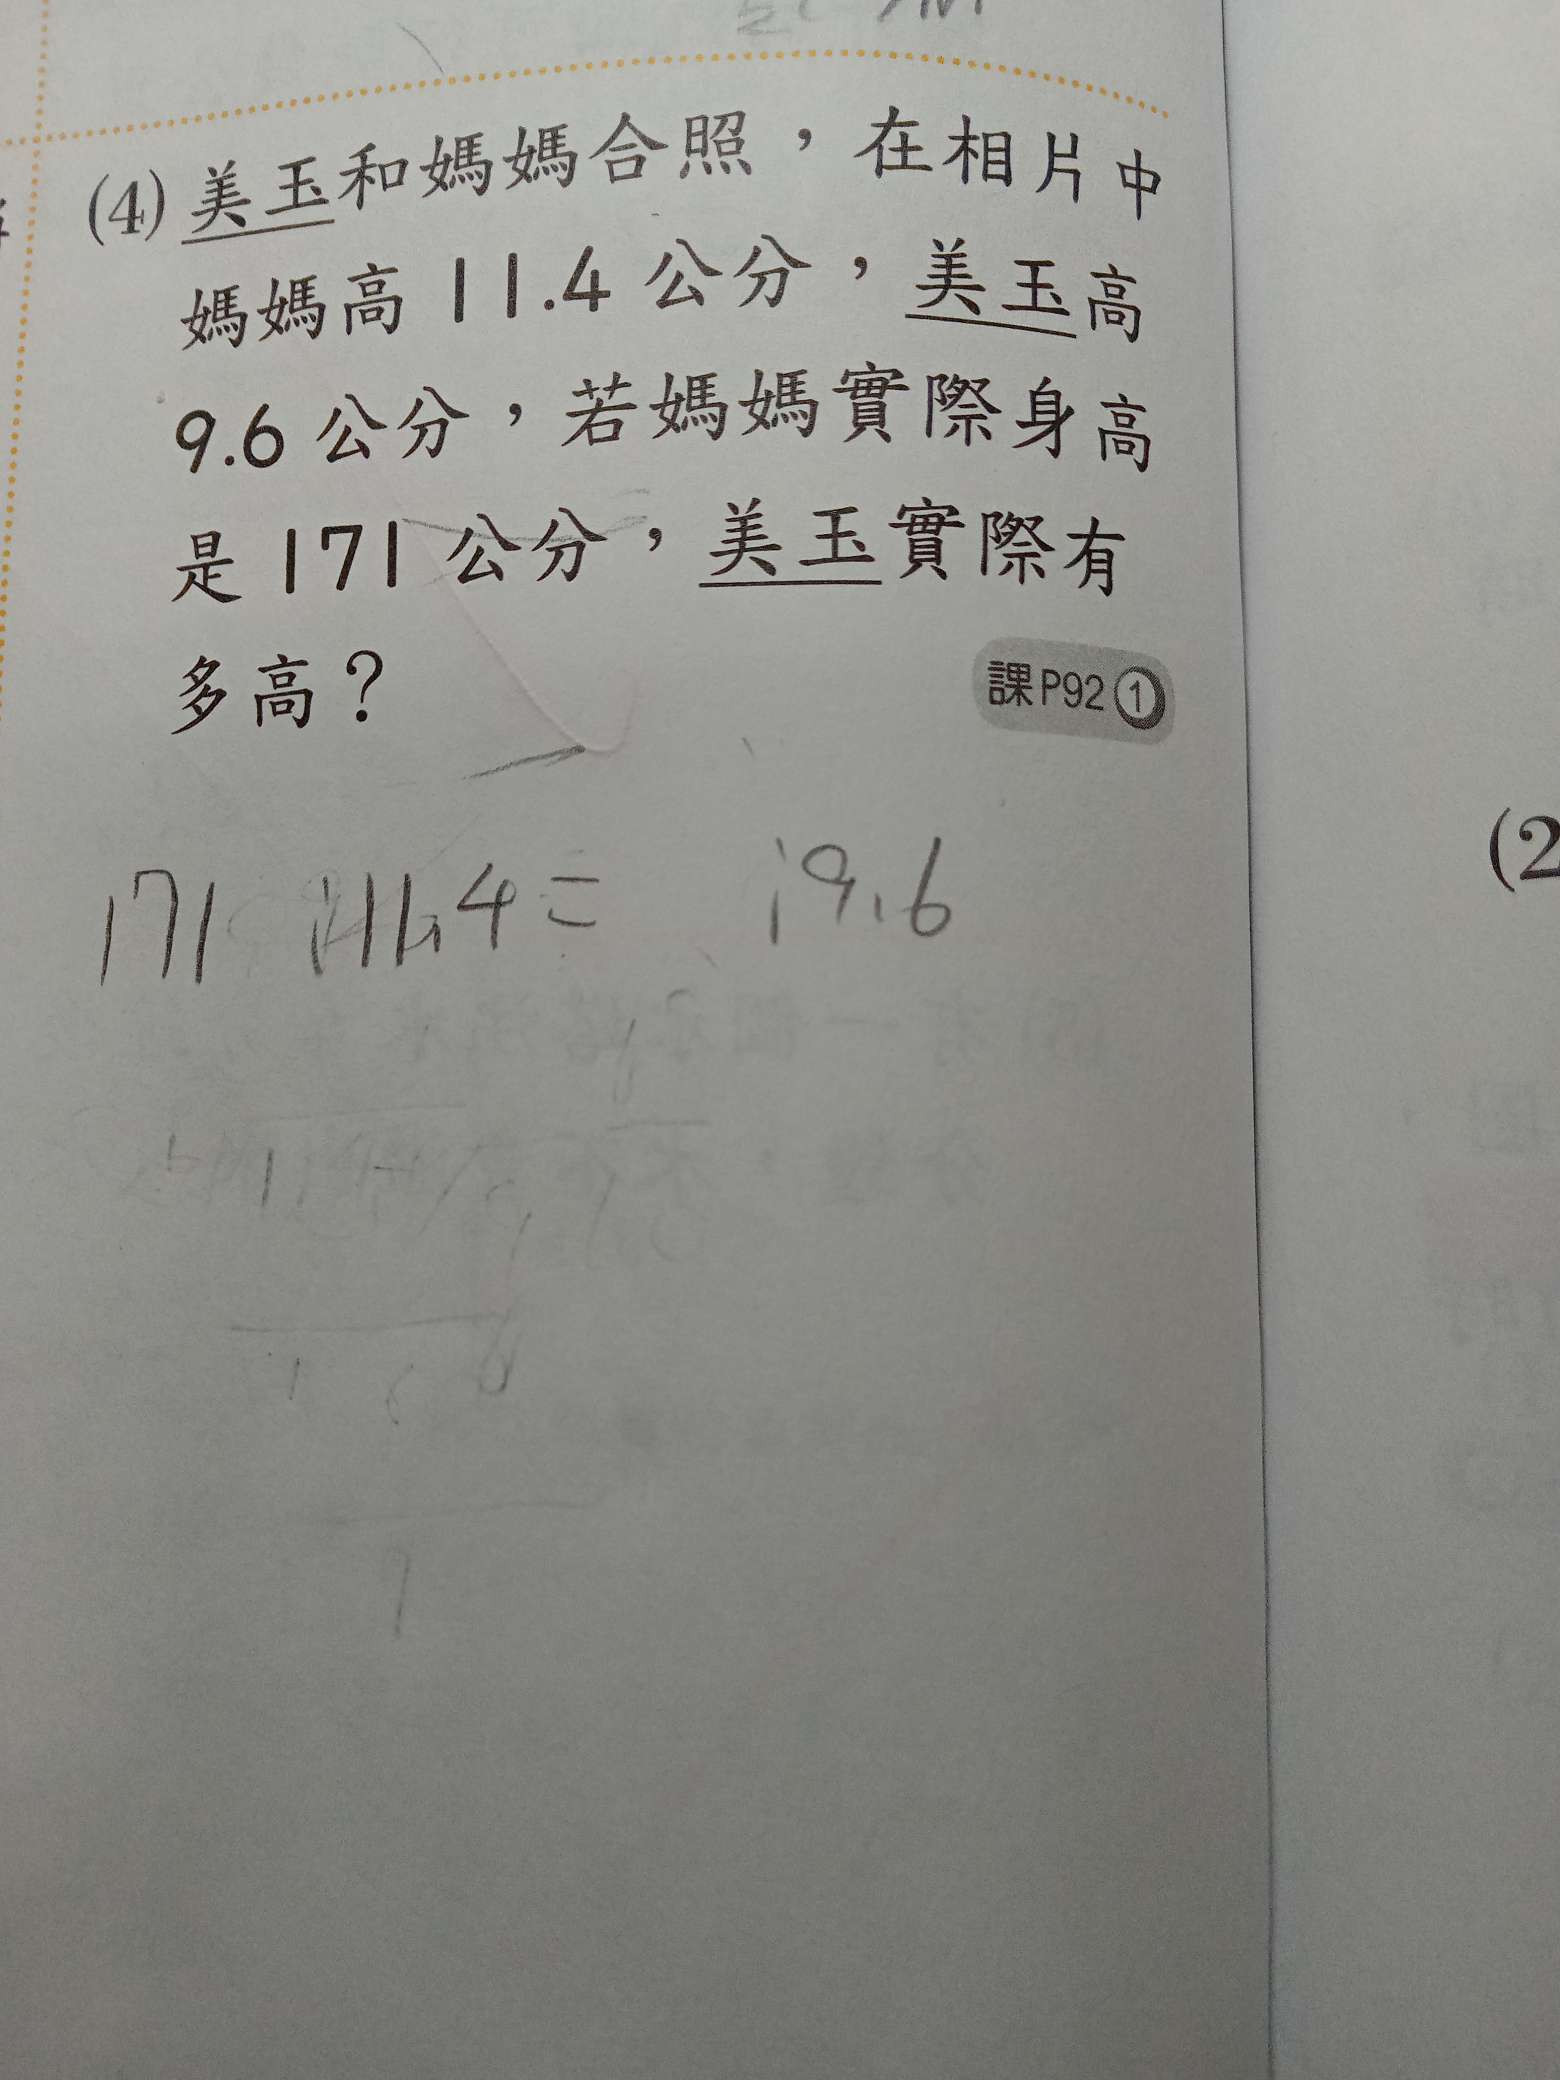 (4) 美玉和媽媽合照，在相片中
媽媽高 11.4 公分，美玉高
9.6 公分，若媽媽實際身高
是 171 公分，美玉實際有
多高？
課P92 ①
171 11.4 = 9.6
(2